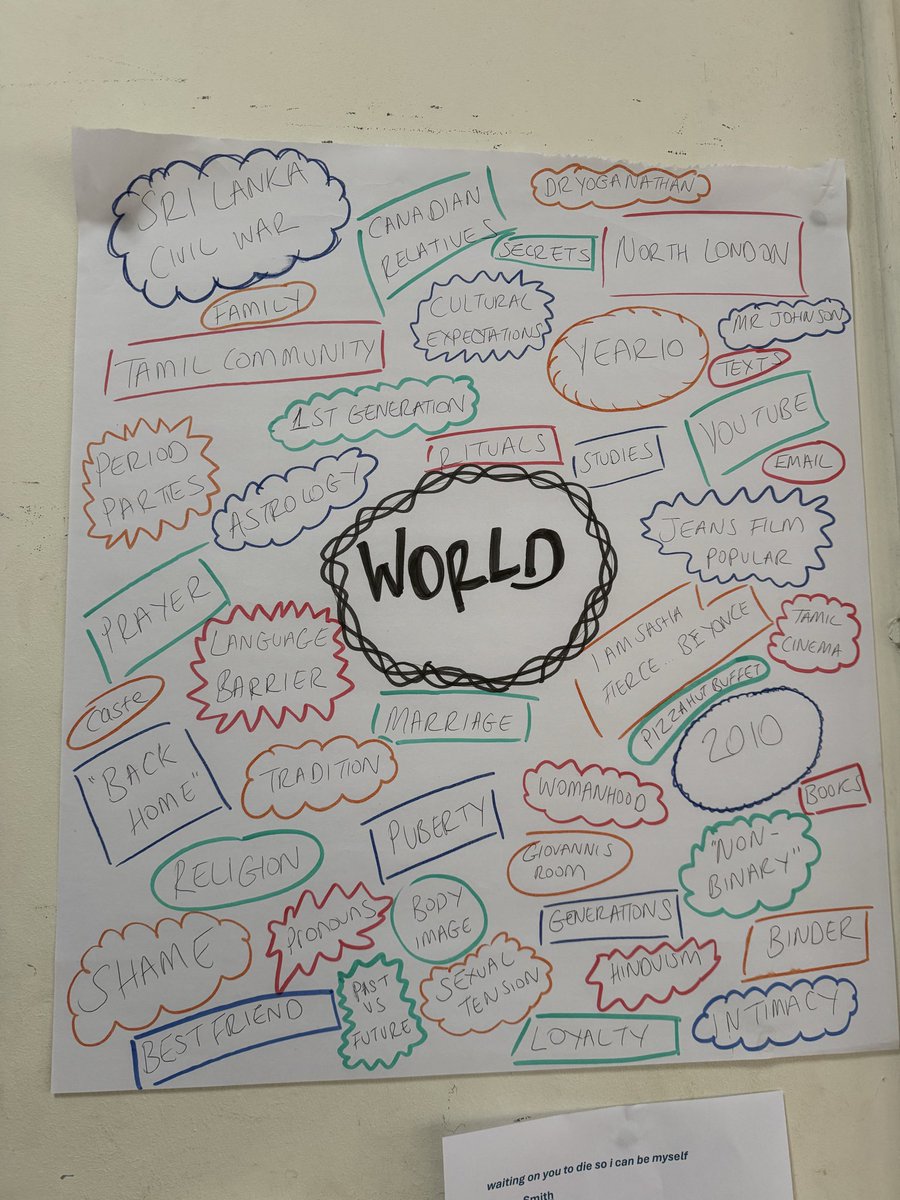 SRI LANKA
CIVIL WAR
CANADIAN
RELATIVES
DR YOGANATHAN
SECRETS
NORTH LONDON
FAMILY
CULTURAL
EXPECTATIONS
MR JOHNSON
TAMIL COMMUNITY
YEAR 10
TEXTS
1ST GENERATION
YOUTUBE
PERIOD
PARTIES
ASTROLOGY
RITUALS
STUDIES
EMAIL
JEANS FILM
POPULAR
WORLD
PRAYER
LANGUAGE
BARRIER
I AM SASHA
FIERCE... BEYONCE
TAMIL
CINEMA
CASTE
MARRIAGE
PIZZAHUT BUFFET
2010
"BACK
HOME"
TRADITION
WOMANHOOD
BOOKS
PUBERTY
RELIGION
GIOVANNIS
ROOM
"NON-
BINARY"
SHAME
PRONOUNS
BODY
IMAGE
GENERATIONS
BINDER
PAST
VS
FUTURE
SEXUAL
TENSION
HINDUISM
INTIMACY
BEST FRIEND
LOYALTY
waiting on you to die so i can be myself
Smith